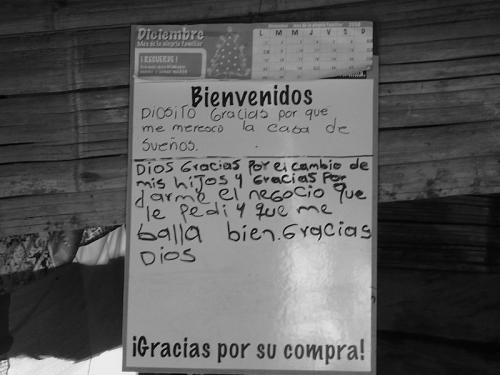 Diciembre
Mes de la alegría familiar
¡RECUERDE!
L M M J V S D
Bienvenidos
DIOSITO Gracias por que
me meresco la casa de
Sueños.
DIOS Gracias Por el cambio de
mis hijos y Gracias Por
darme el negocio que
le Pedi y que me
balla bien. Gracias
DIOS
¡Gracias por su compra!